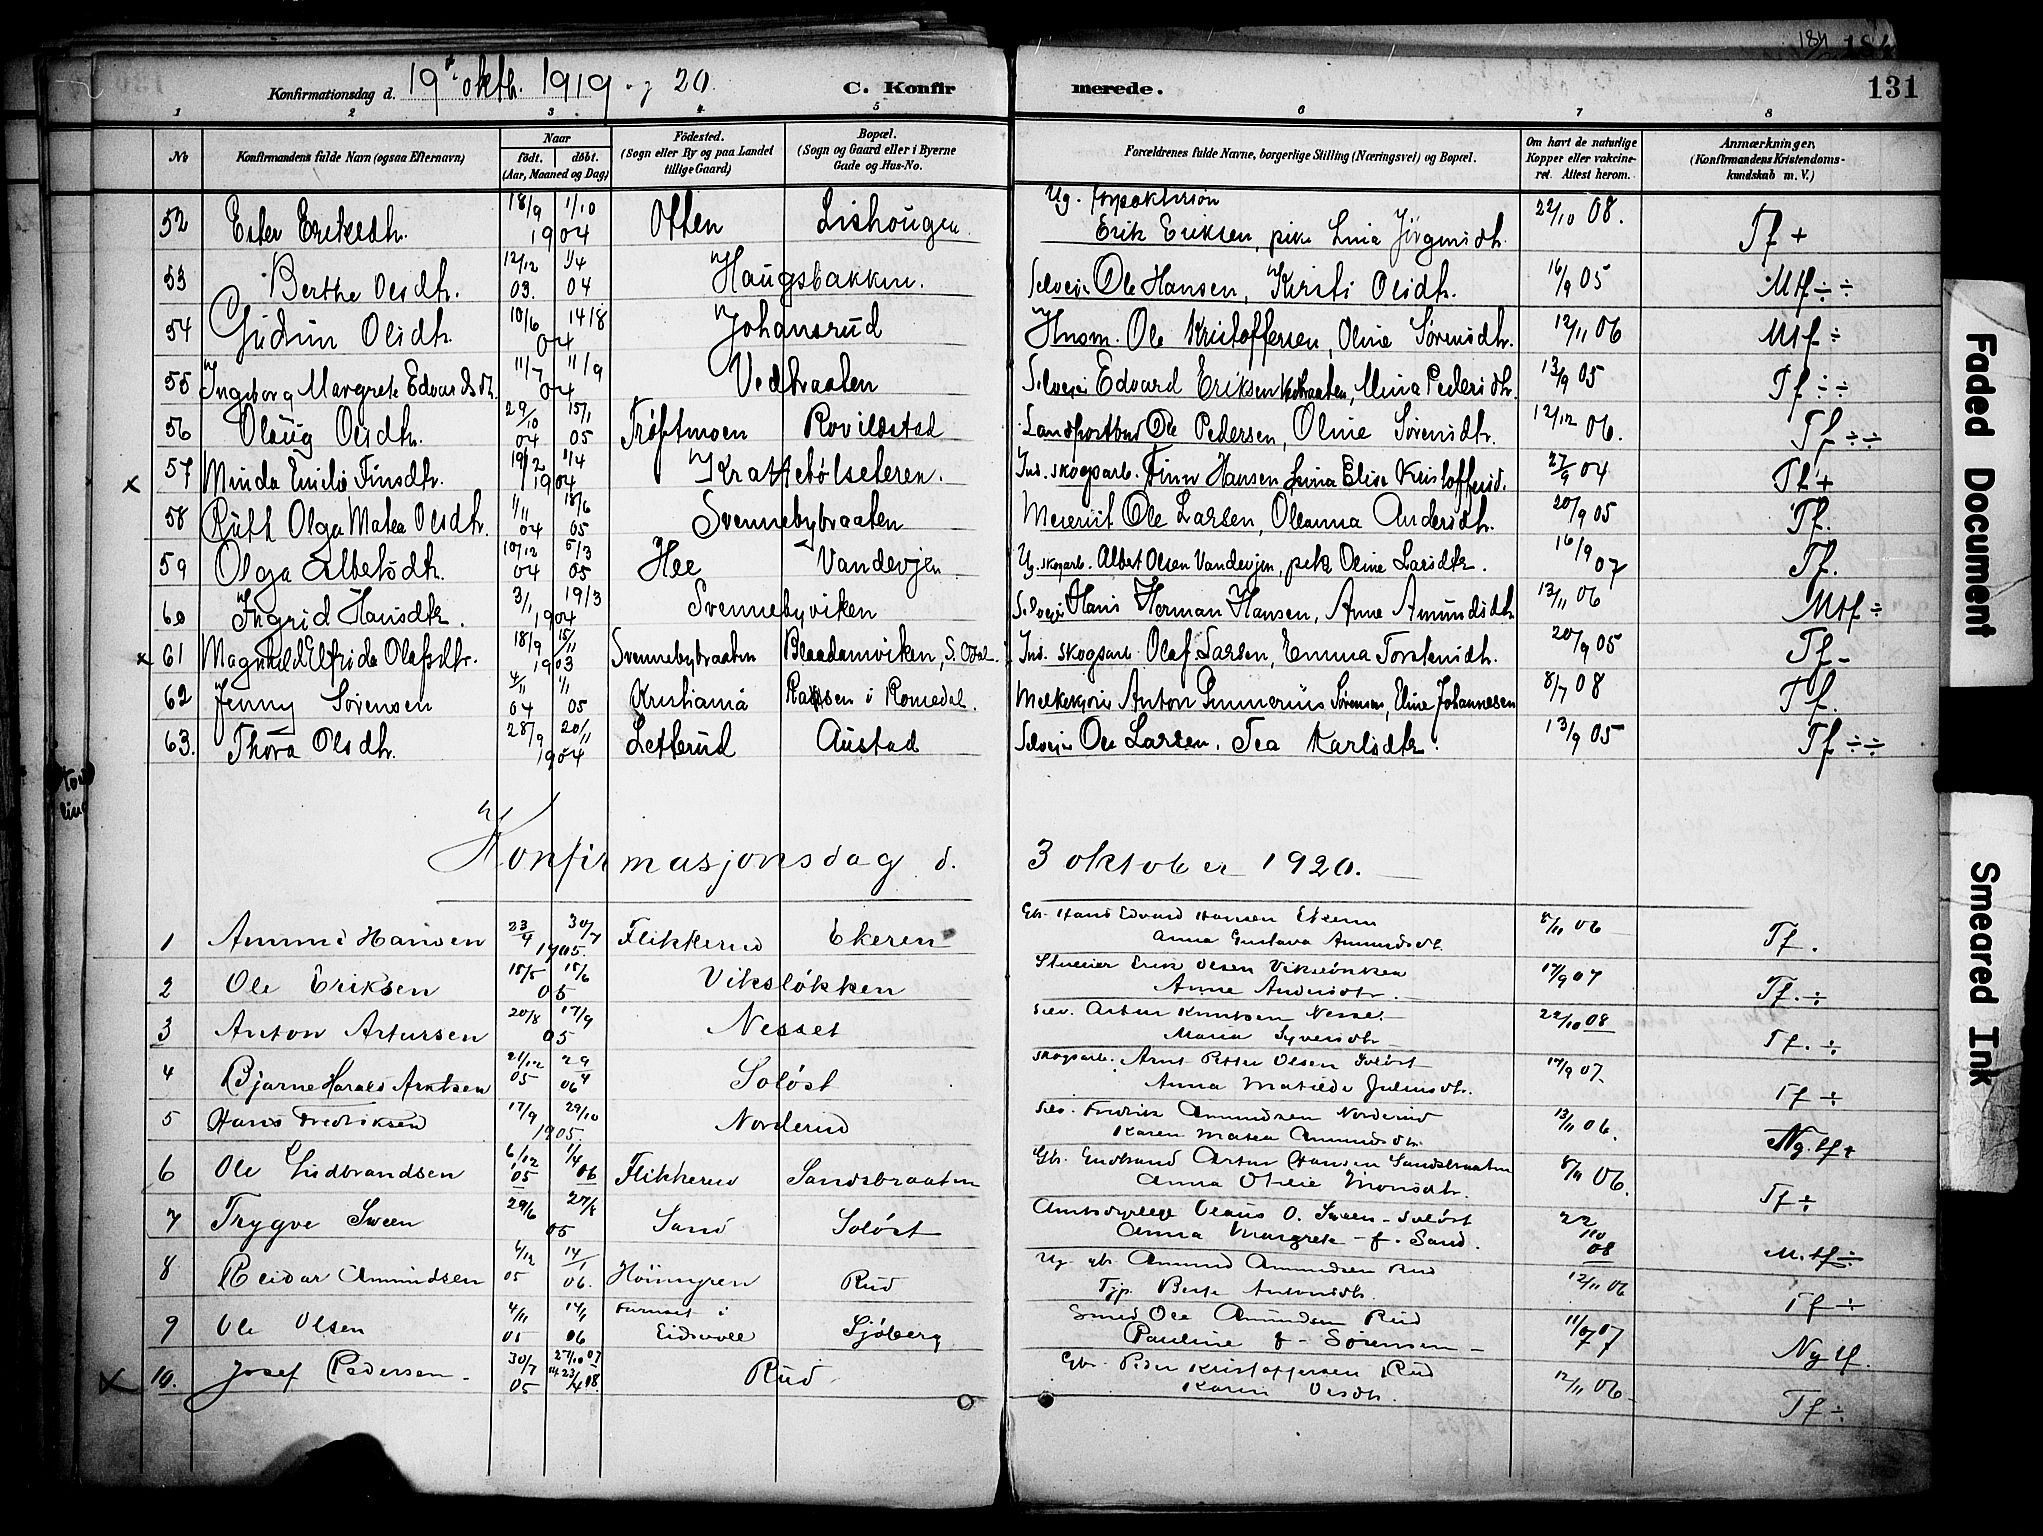 184
131
Konfirmationsdag d. 19de oktb. 1919 og 20.
C. Konfirmerede.
1 2 3 4 5 6 7 8
No
Konfirmandens fulde Navn (ogsaa Efternavn)
Naar
født. døbt.
(Aar, Maaned og Dag)
Fødested.
(Sogn eller By og paa Landet
tillige Gaard)
Bopæl.
(Sogn og Gaard eller i Byerne
Gade og Hus-No.
Forældrenes fulde Navne, borgerlige Stilling (Næringsvei) og Bopæl.
Om havt de naturlige
Kopper eller vakcine-
ret. Attest herom.
Anmærkninger,
(Konfirmandens Kristendoms-
kundskab m. V.)
52 Ester Eriksdtr. 18/9 1/10 1904 Otten Lishougen Ug. Erik Eriksen, pike Lina Jørgensdtr. 22/10 08. Tf +
53 Berthe Olsdtr. 12/12 03. 1/4 04 Haugsbakken. Selveier Ole Hansen, Kirsti Olsdtr. 16/9 05 Mtf ÷ ÷
54 Gudrun Olsdtr. 10/6 14/8 04 Johansrud Husm. Ole Kristoffersen, Oline Sørensdtr. 12/11 06 Mtf ÷
55 Ingeborg Margrete Edvardsdtr. 11/7 11/9 04 Vedbraaten Selveier Edvard Eriksen Vedbraaten, Mina Pedersdtr. 13/9 05 Tf ÷ ÷
56 Olaug Olsdtr. 29/10 04 15/1 05 Trøftmoen Rovildstad Landpostbud Ole Pedersen, Oline Sørensdtr. 12/12 06. Tf ÷ ÷
x 57 Minda Emilie Finsdtr. 19/2 1/4 1904 Krattebølseteren. Ins. skogsarb. Finn Hansen, Lina Elise Kristoffersd. 27/9 04 Tf +
58 Ruth Olga Matea Olsdtr. 1/11 04 18/6 05 Svennebybraaten Meierist Ole Larsen, Oleanna Andersdtr. 20/9 05 Tf.
59 Olga Albertsdtr. 10/12 04 5/3 05 Hee Vandevjen Ug. skogarb. Albert Olsen Vandevjen, pike Oline Larsdtr. 16/9 07 Tf.
60 Ingrid Hansdtr. 3/1 19/3 1904 Svennebyviken Selveier Hans Herman Hansen, Anne Amundsdtr 13/11 06 Mtf ÷
x 61 Magnhild Elfrida Olafsdtr. 18/9 15/11 1903 Svennebybraaten Blaadamviken, S. Odal Ins. skogsarb. Olaf Larsen, Emma Torstensdtr. 20/9 05 Tf -
62 Jenny Sørensen 4/11 04 1/1 05 Kristiania i Romedal. Melkekjører Anton Gunnerius Sørensen, Eline Johannesen 8/7 08 Tf.
63. Thora Olsdtr. 28/9 20/11 1904 Letterud Austad Selveier Ole Larsen. Tea Karlsdtr. 13/9 05 Tf ÷ ÷
Konfirmasjonsdag d. 3 oktober 1920.
1 Ammund Hansen 23/4 30/7 1905. Flikkerud Ekeren Gbr. Hans Edvard Hansen Ekeren
Anna Gustava Amundsdtr. 8/11 06 Tf.
2 Ole Eriksen 15/5 15/6 05 Viksløkken Erik Olsen Vikslökken
Anne Andersdtr. 17/9 07 Tf. ÷
3 Anton Artursen 20/8 17/9 05 Nesset Selv. Artur Knutsen Nesset
Maria Syversdtr. 22/10 08 Tf. ÷
4 Bjarne Harald Arntsen 21/12 05 29/4 06 Soløst Skogsarb. Arnt Petter Olsen Soløst
Anna Matilde Juliusdtr. 17/9 07. Tf ÷
5 Hans Fredriksen 17/9 29/10 1905. Norderud Selv. Fredrik Amundsen Norderud
Karen Matea Amundsdtr. 13/11 06. Ng. tf +
6 Ole Gudbrandsen 6/12 05 1/4 06 Flikkerud Sandsbraaten Gbr. Gudbrand Artur Hansen Sandsbraaten
Anna Otilie Monsdtr. 8/11 06. Tf ÷
7 Trygve Sween 29/6 27/8 05 Sand Soløst Amtsdyrlege Olaus O. Sween - Soløst
Anna Margrete - f. Sand. 22/10 08 M. tf ÷
8 Reidar Amundsen 6/12 05 14/1 06. Rud Ug. gbr. Amund Amundsen Rud
Berte Antonsdtr. 12/11 06 Tf ÷
9 Ole Olsen 4/11 05 14/1 06 Furuset i
Eidsvold Sjøberg Smed Ole Amundsen Rud
Pauline f - Sørensen - 11/7 07 Ng tf.
x 10. Josef Pedersen - 30/7 05 27/10 07 23/4 08. Rud Gbr. Peder Kristoffersen Rud
Karen Olsdtr. 12/11 06 - Tf ÷
Faded Document
Smeared Ink